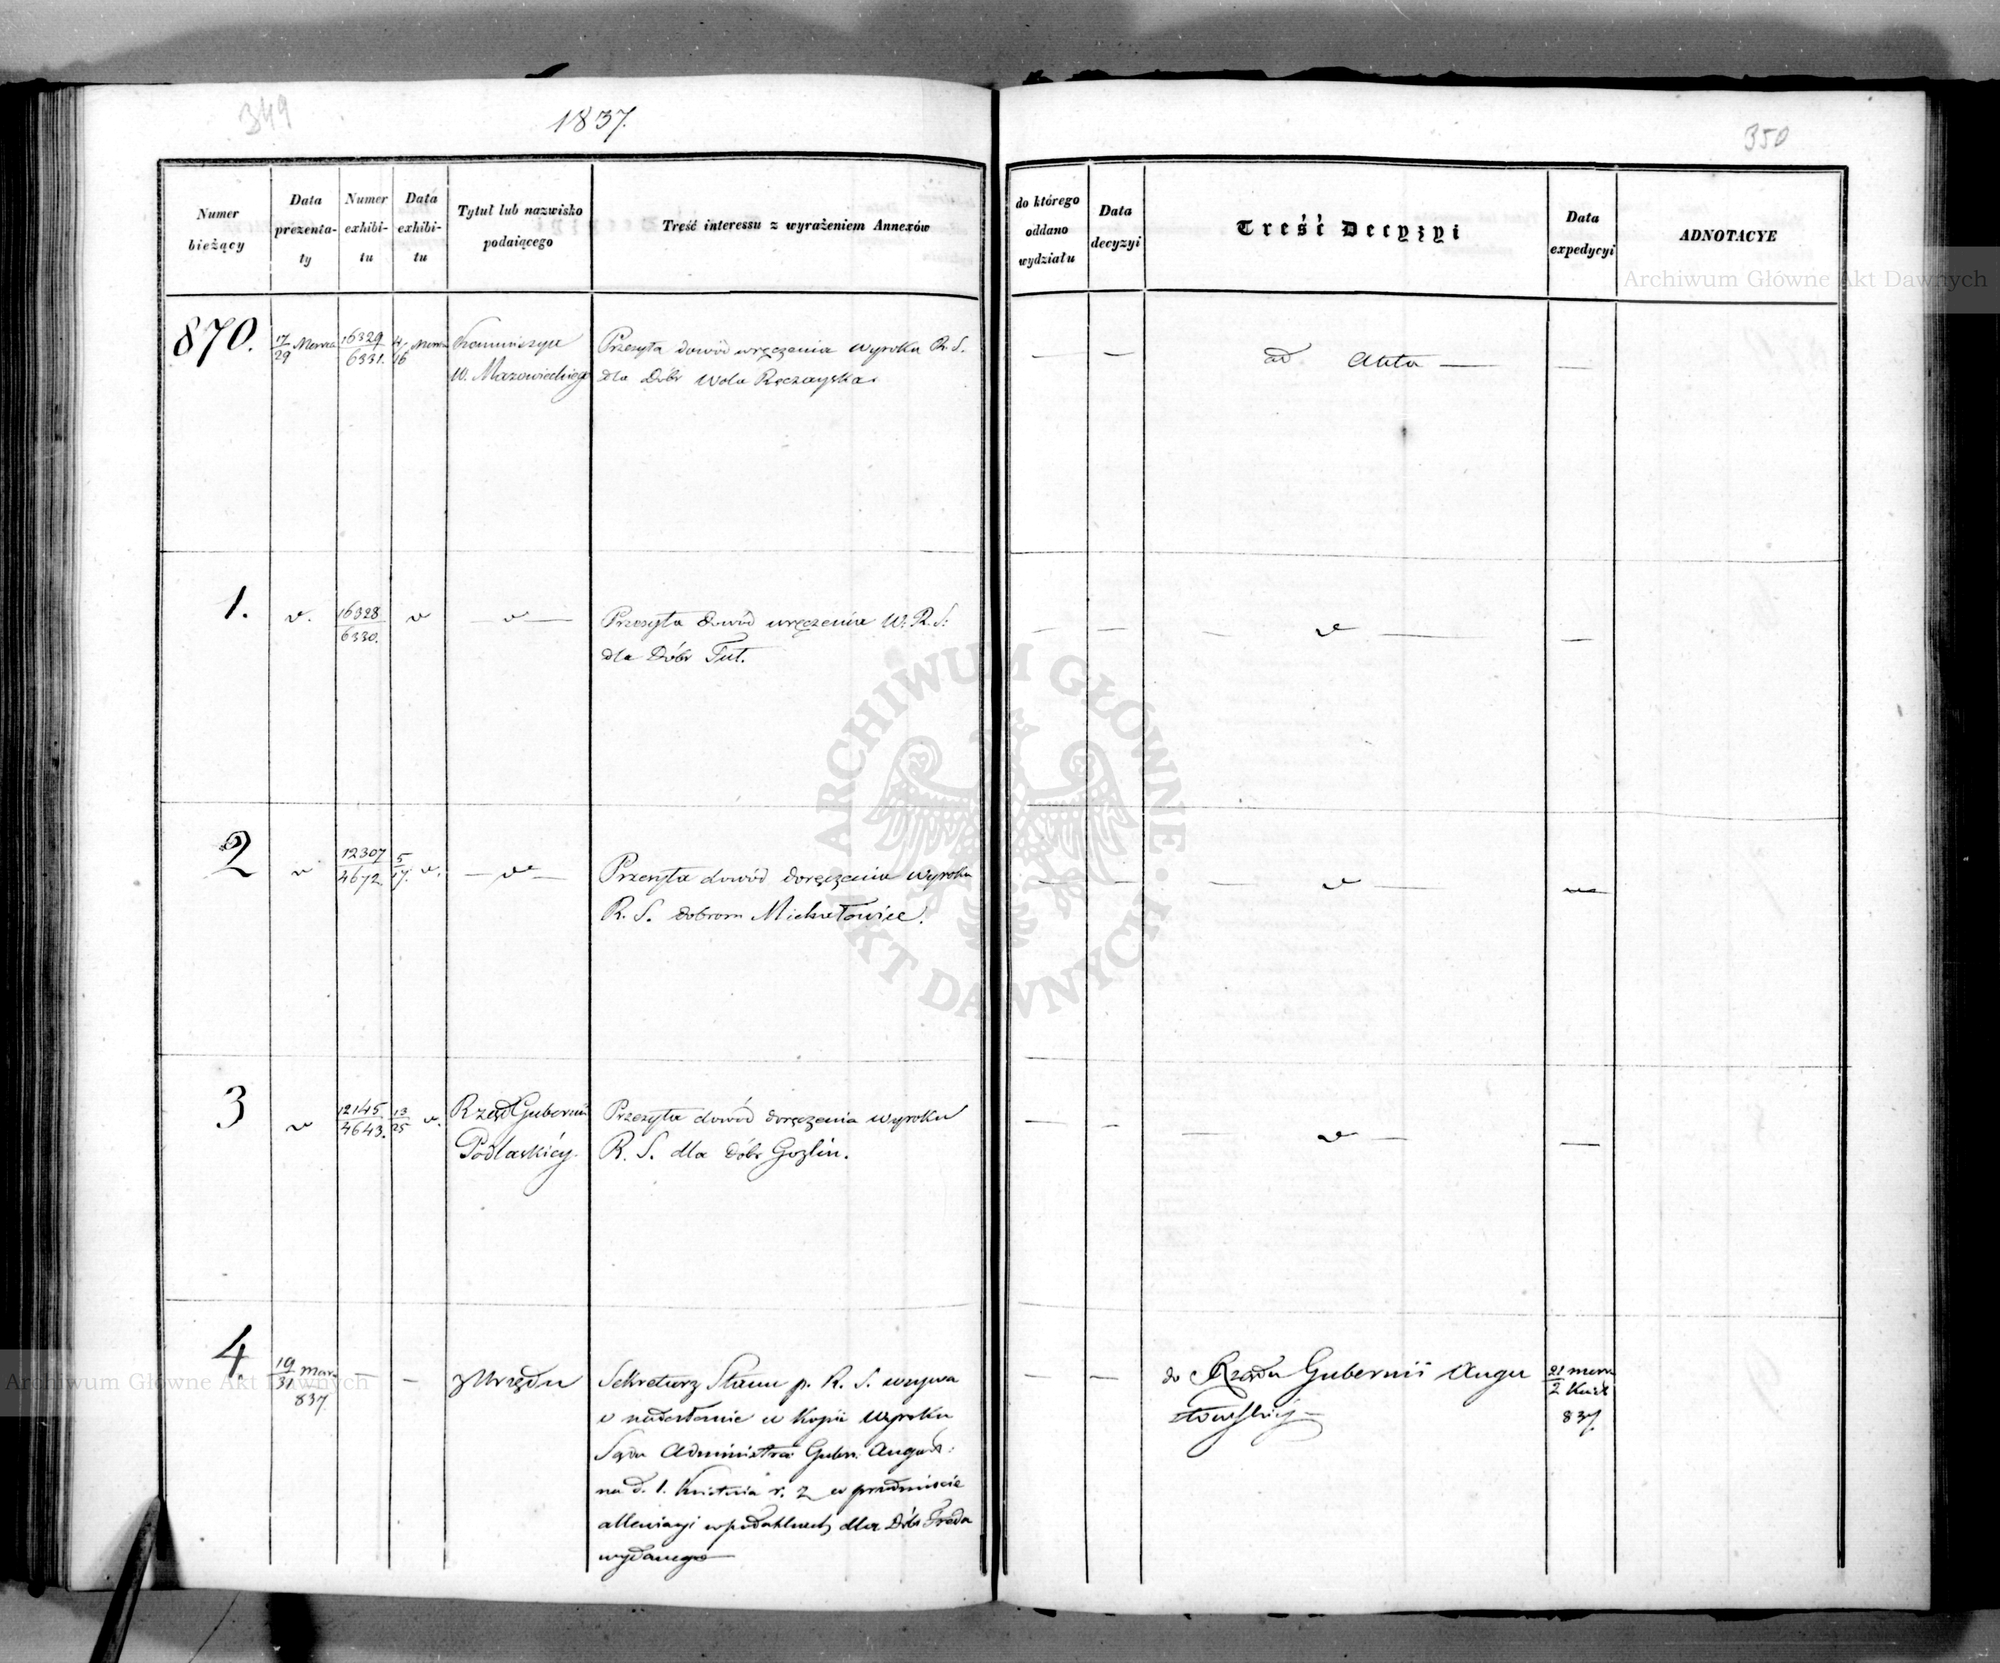 349
1837.
350
Numer bieżący
Data prezenta-ty
Numer exhibi-tu
Data exhibi-tu
Tytuł lub nazwisko podaiącego
Treść interessu z wyrażeniem Annexów
do którego oddano wydziału
Data decyzyi
Treść Decyzyi
Data expedycyi
ADNOTACYE
870.
17/29 Marca
16329/6331.
4/16 Marca
Kommissya
W. Mazowieckiego
Przesyła dowód wręczenia wyroku R. S.
dla Dóbr Wola Ręczayska
— — ad Akta — —
1.
v.
16328/6330.
v
— v —
Przesyła dowód wręczenia W. R. S.
dla Dóbr Tul.
— — — v — —
2
v
12307/4672.
5/17. v.
— v —
Przesyła dowód doręczenia wyroku
R. S. dobrom Michałowice.
— — — v — —
3
v
12145/4643.
13/25 v.
Rząd Gubernii
Podlaskiéy.
Przesyła dowód doręczenia wyroku
R. S. dla Dóbr Gozlin.
— — — v — —
4.
19/31 mar.
837.
—
—
z Urzędu
Sekretarz Stanu p. R. S. wzywa
o nadesłanie w Kopii Wyroku
Sądu Administra: Gubn: August:
na d. 1. Kwietnia r. z. w przedmiocie
dla Dóbr Freda
wydanego —
— —
do Rządu Gubernii Augu
stowskiéj —
21 marca/2 Kwiet
837.
Archiwum Główne Akt Dawnych
Archiwum Główne Akt Dawnych
ARCHIWUM GŁÓWNE · AKT DAWNYCH ·